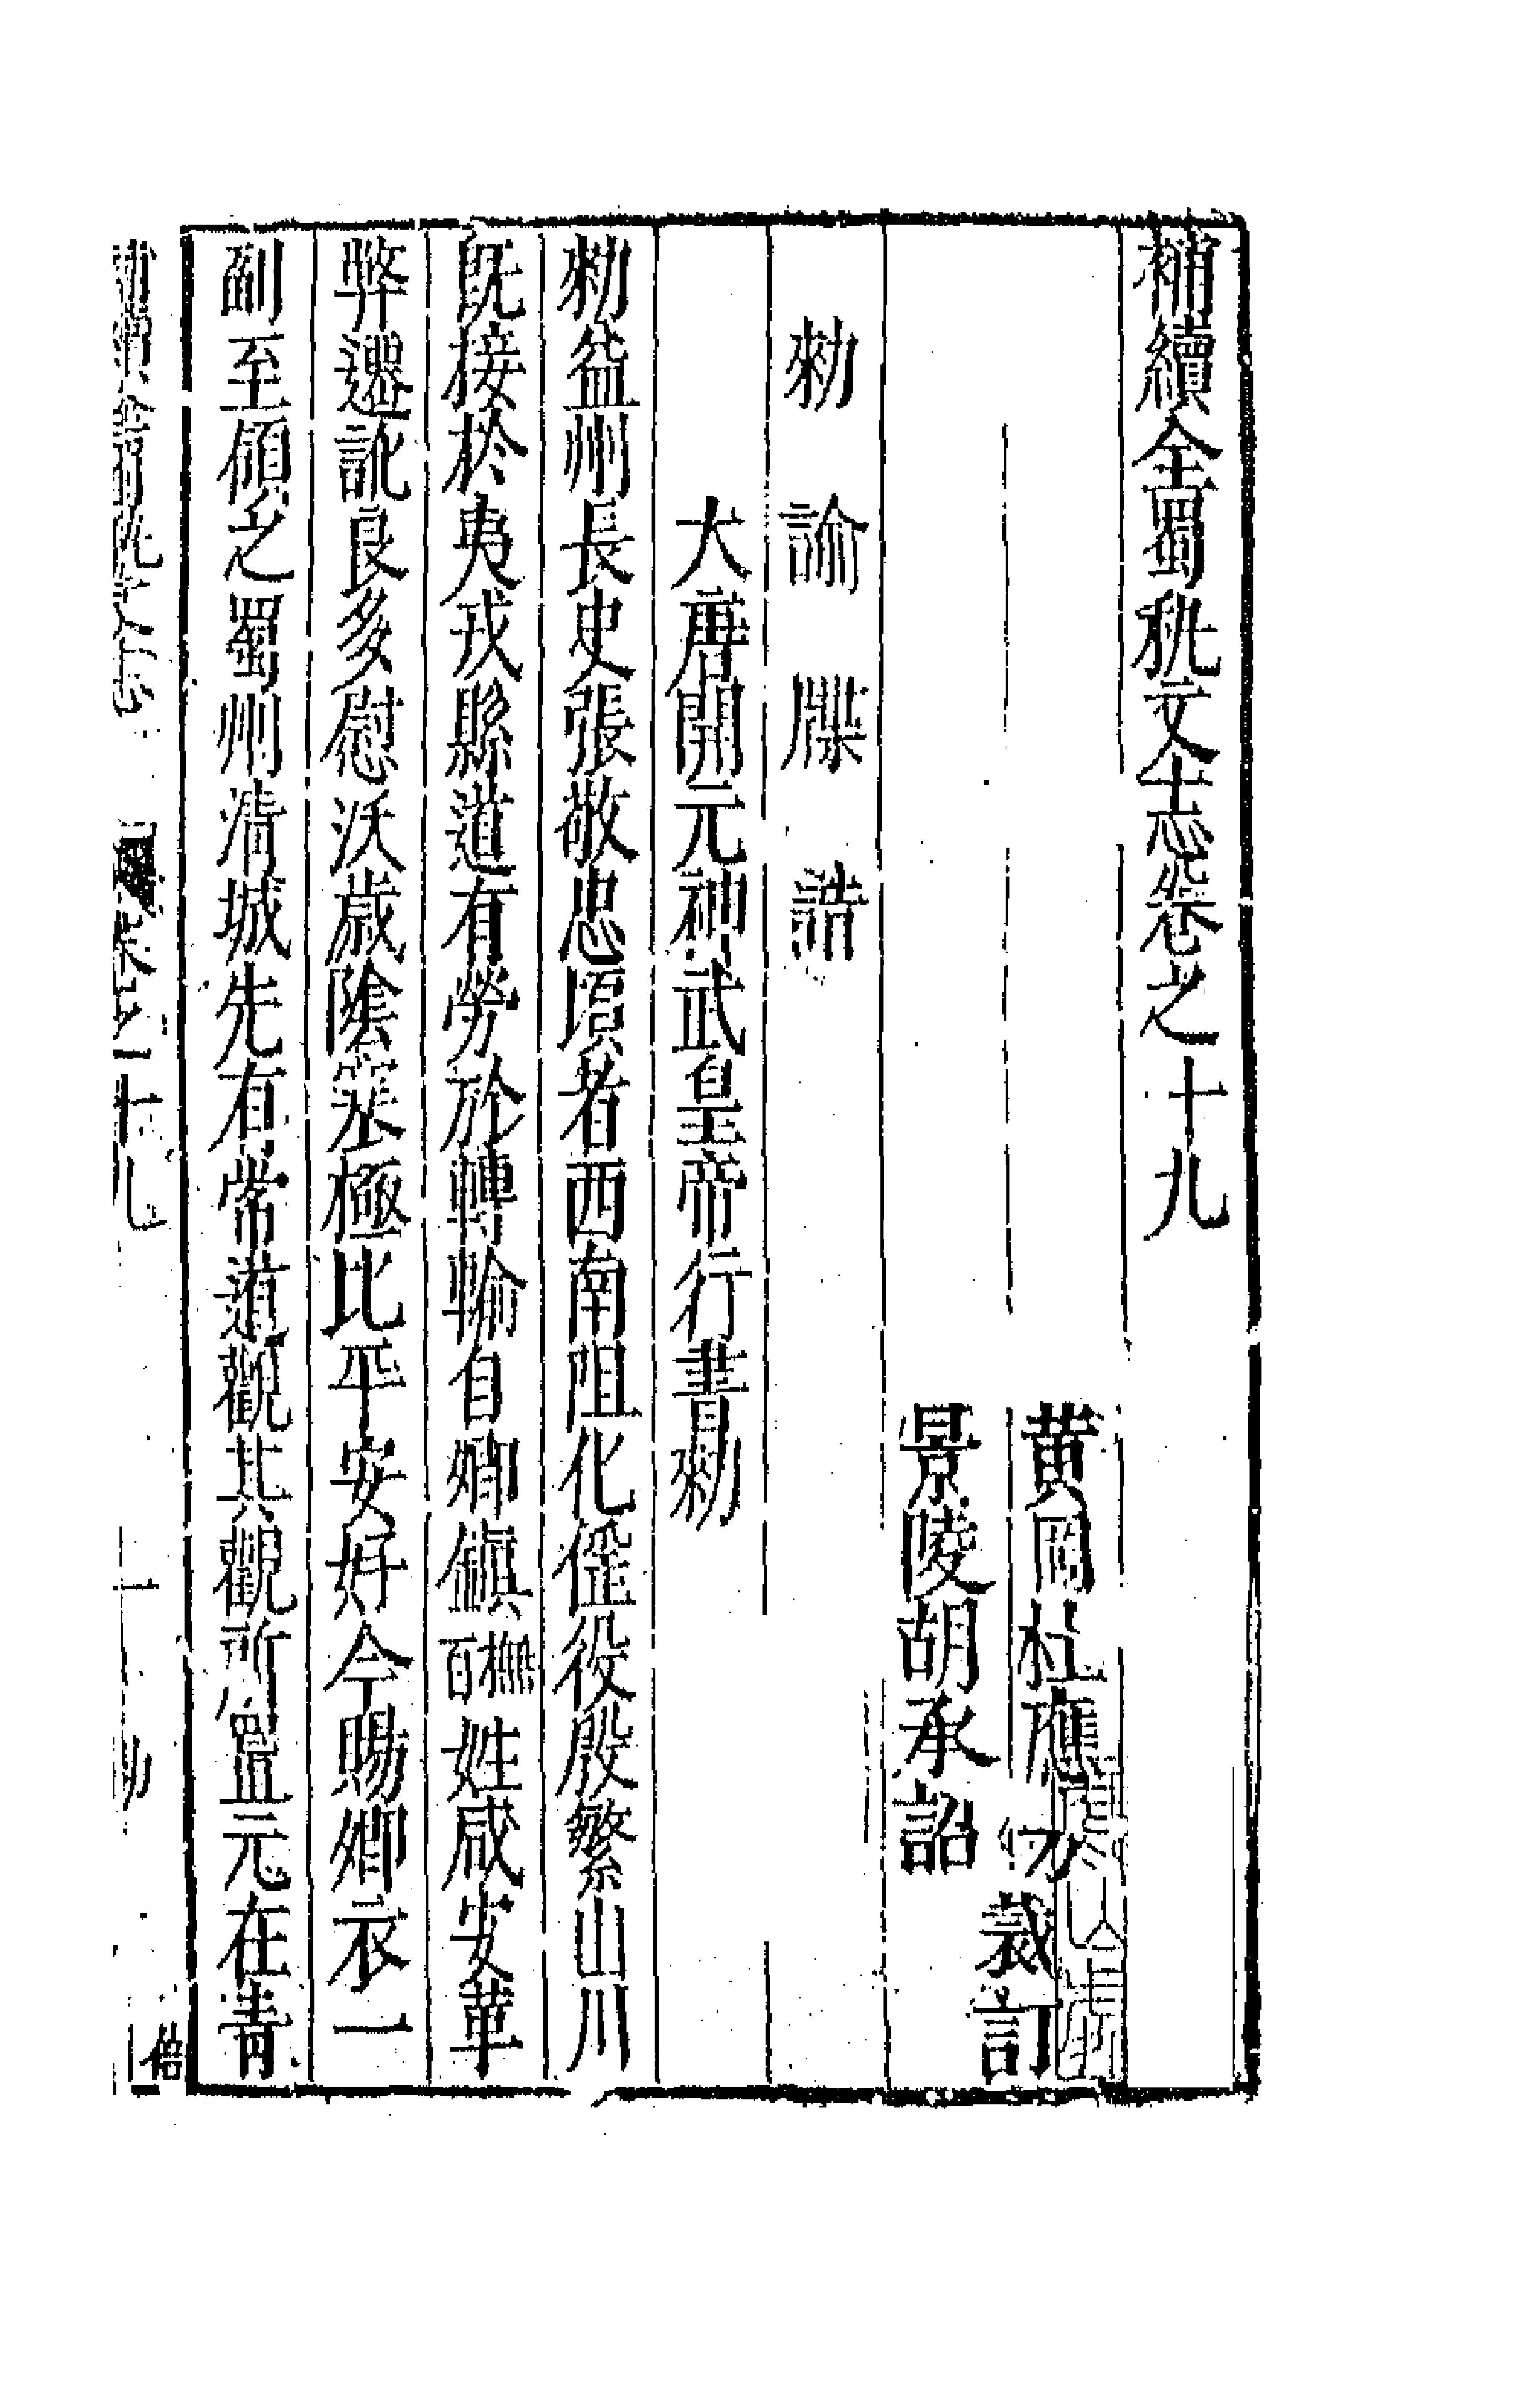 補續全蜀秇文志卷之十九
黄岡杜應芳
裁訂
景陵胡承詔
勑諭牒誥
大唐開元神武皇帝行書勑
勑益州長史張敬忠頃者西南阻化徭役殷繁山川
旣接於夷戎縣道有勞於轉輸自卿鎭撫百姓咸安革
弊遷訛良多慰沃歲陰寒極比平安好今賜卿衣一
副至領之蜀州清城先有常道觀其觀所置元在青